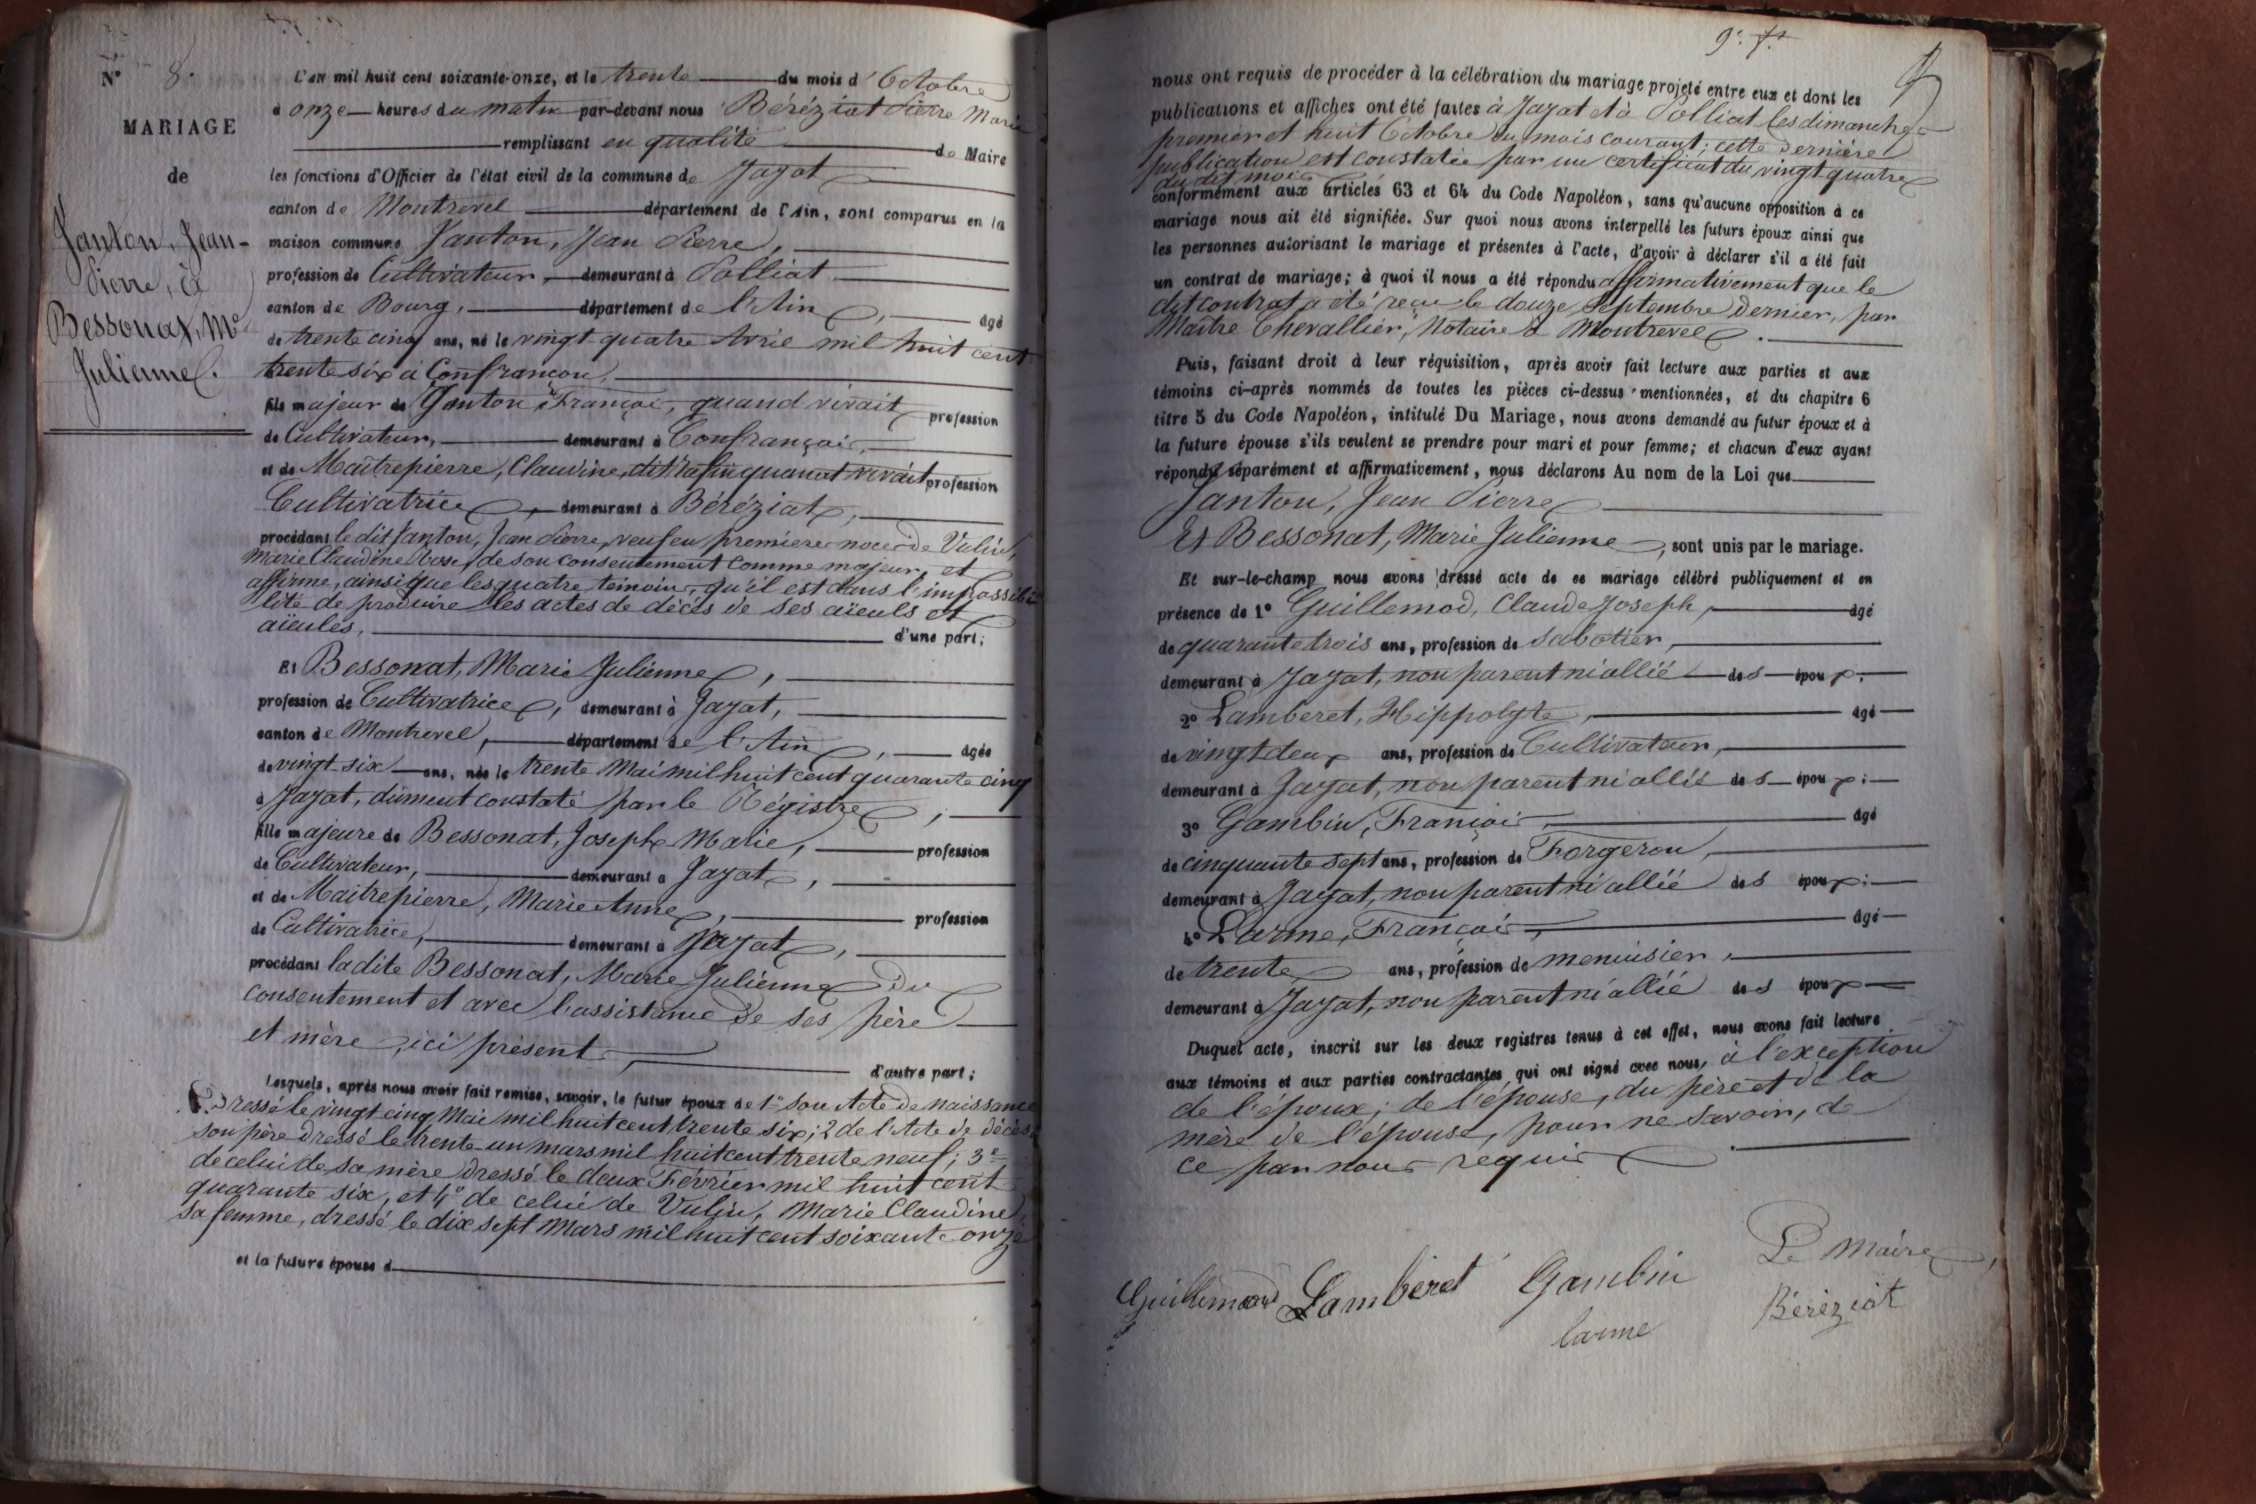 N° 8.
MARIAGE
de
Janton, Jean-
Pierre, à
Bessonat, Mie
Julienne.
L'an mil huit cent soixante-onze, et le trente du mois d'Octobre
à onze heures du matin par-devant nous Béréziat Pierre Marie
remplissant en qualité de Maire
les fonctions d'Officier de l'état civil de la commune de Jayat
canton de Montrevel département de l'Ain, sont comparus en la
maison commune Janton, Jean Pierre,
profession de Cultivateur, demeurant à Polliat
canton de Bourg, département de l'Ain, âgé
de trente cinq ans, né le vingt quatre Avril mil huit cent
trente six à Confrançon,
fils majeur de Janton, François, quand vivait profession
de Cultivateur, demeurant à Confrançois,
et de Maîtrepierre, Claudine, quand vivait profession
Cultivatrice, demeurant à Béréziat,
procédant le dit Janton, Jean Pierre, veuf en premières noces de Vulin,
Marie Claudine Rose, de son consentement comme majeur, et
affirme, ainsi que les quatre témoins, qu'il est dans l'impossibi
lité de produire les actes de décès de ses aïeuls et
aïeules, d'une part;
Et Bessonat, Marie Julienne,
profession de Cultivatrice, demeurant à Jayat,
canton de Montrevel, département de l'Ain, âgée
de vingt-six ans, née le trente Mai mil huit cent quarante cinq
à Jayat, dûment constaté par le Régistre;
fille majeure de Bessonat, Joseph Marie, profession
de Cultivateur, demeurant à Jayat,
et de Maitrepierre, Marie Anne, profession
de Cultivatrice, demeurant à Jayat,
procédant ladite Bessonat, Marie Julienne du
consentement et avec l'assistance de ses père
et mère, ici présent
d'autre part;
Lesquels, après nous avoir fait remise, savoir, le futur époux de 1° son Acte de naissance
Dressé le vingt cinq Mai mil huit cent trente six; 2 de l'Acte de décès
son père dressé le trente-un mars mil huit cent trente neuf; 3°
de celui de sa mère dressé le deux Février mil huit cent
quarante six, et 4° de celui de Vulin, Marie Claudine
sa femme, dressé le dix sept Mars mil huit cent soixante onze
et la future épouse d
9e f.
nous ont requis de procéder à la célébration du mariage projeté entre eux et dont les
publications et affiches ont été faites à Jayat et à Polliat les dimanches
premier et huit Octobre du mois courant; cette dernière
publication est constatée par un certificat du vingt quatre
du dit mois
conformément aux articles 63 et 64 du Code Napoléon, sans qu'aucune opposition à ce
mariage nous ait été signifiée. Sur quoi nous avons interpellé les futurs époux ainsi que
les personnes autorisant le mariage et présentes à l'acte, d'avoir à déclarer s'il a été fait
un contrat de mariage; à quoi il nous a été répondu affirmativement que le
dit contrat a été reçu le douze Septembre dernier, par
Maître Chevallier, Notaire à Montrevel.
Puis, faisant droit à leur réquisition, après avoir fait lecture aux parties et aux
témoins ci-après nommés de toutes les pièces ci-dessus mentionnées, et du chapitre 6
titre 5 du Code Napoléon, intitulé Du Mariage, nous avons demandé au futur époux et à
la future épouse s'ils veulent se prendre pour mari et pour femme; et chacun d'eux ayant
répondu séparément et affirmativement, nous déclarons Au nom de la Loi que
Janton, Jean Pierre
Et Bessonat, Marie Julienne, sont unis par le mariage.
Et sur-le-champ nous avons dressé acte de ce mariage célébré publiquement et en
présence de 1° Guillemod, Claude Joseph, âgé
de quarante trois ans, profession de Sabotier,
demeurant à Jayat, non parent ni allié des époux;
2° Lamberet, Hippolyte, âgé
de vingt deux ans, profession de Cultivateur,
demeurant à Jayat, non parent ni allié des époux;
3° Gambin, François âgé
de cinquante sept ans, profession de Forgeron,
demeurant à Jayat, non parent ni allié des époux;
4° Larme, François, âgé
de trente ans, profession de menuisier,
demeurant à Jayat, non parent ni allié des époux
Duquel acte, inscrit sur les deux registres tenus à cet effet, nous avons fait lecture
aux témoins et aux parties contractantes qui ont signé avec nous, à l'exception
de l'époux; de l'épouse, du père et de la
mère de l'épouse, pour ne savoir, de
ce par nous requis
Le Maire,
Guillemod Lamberet Gambin Béréziat
larme